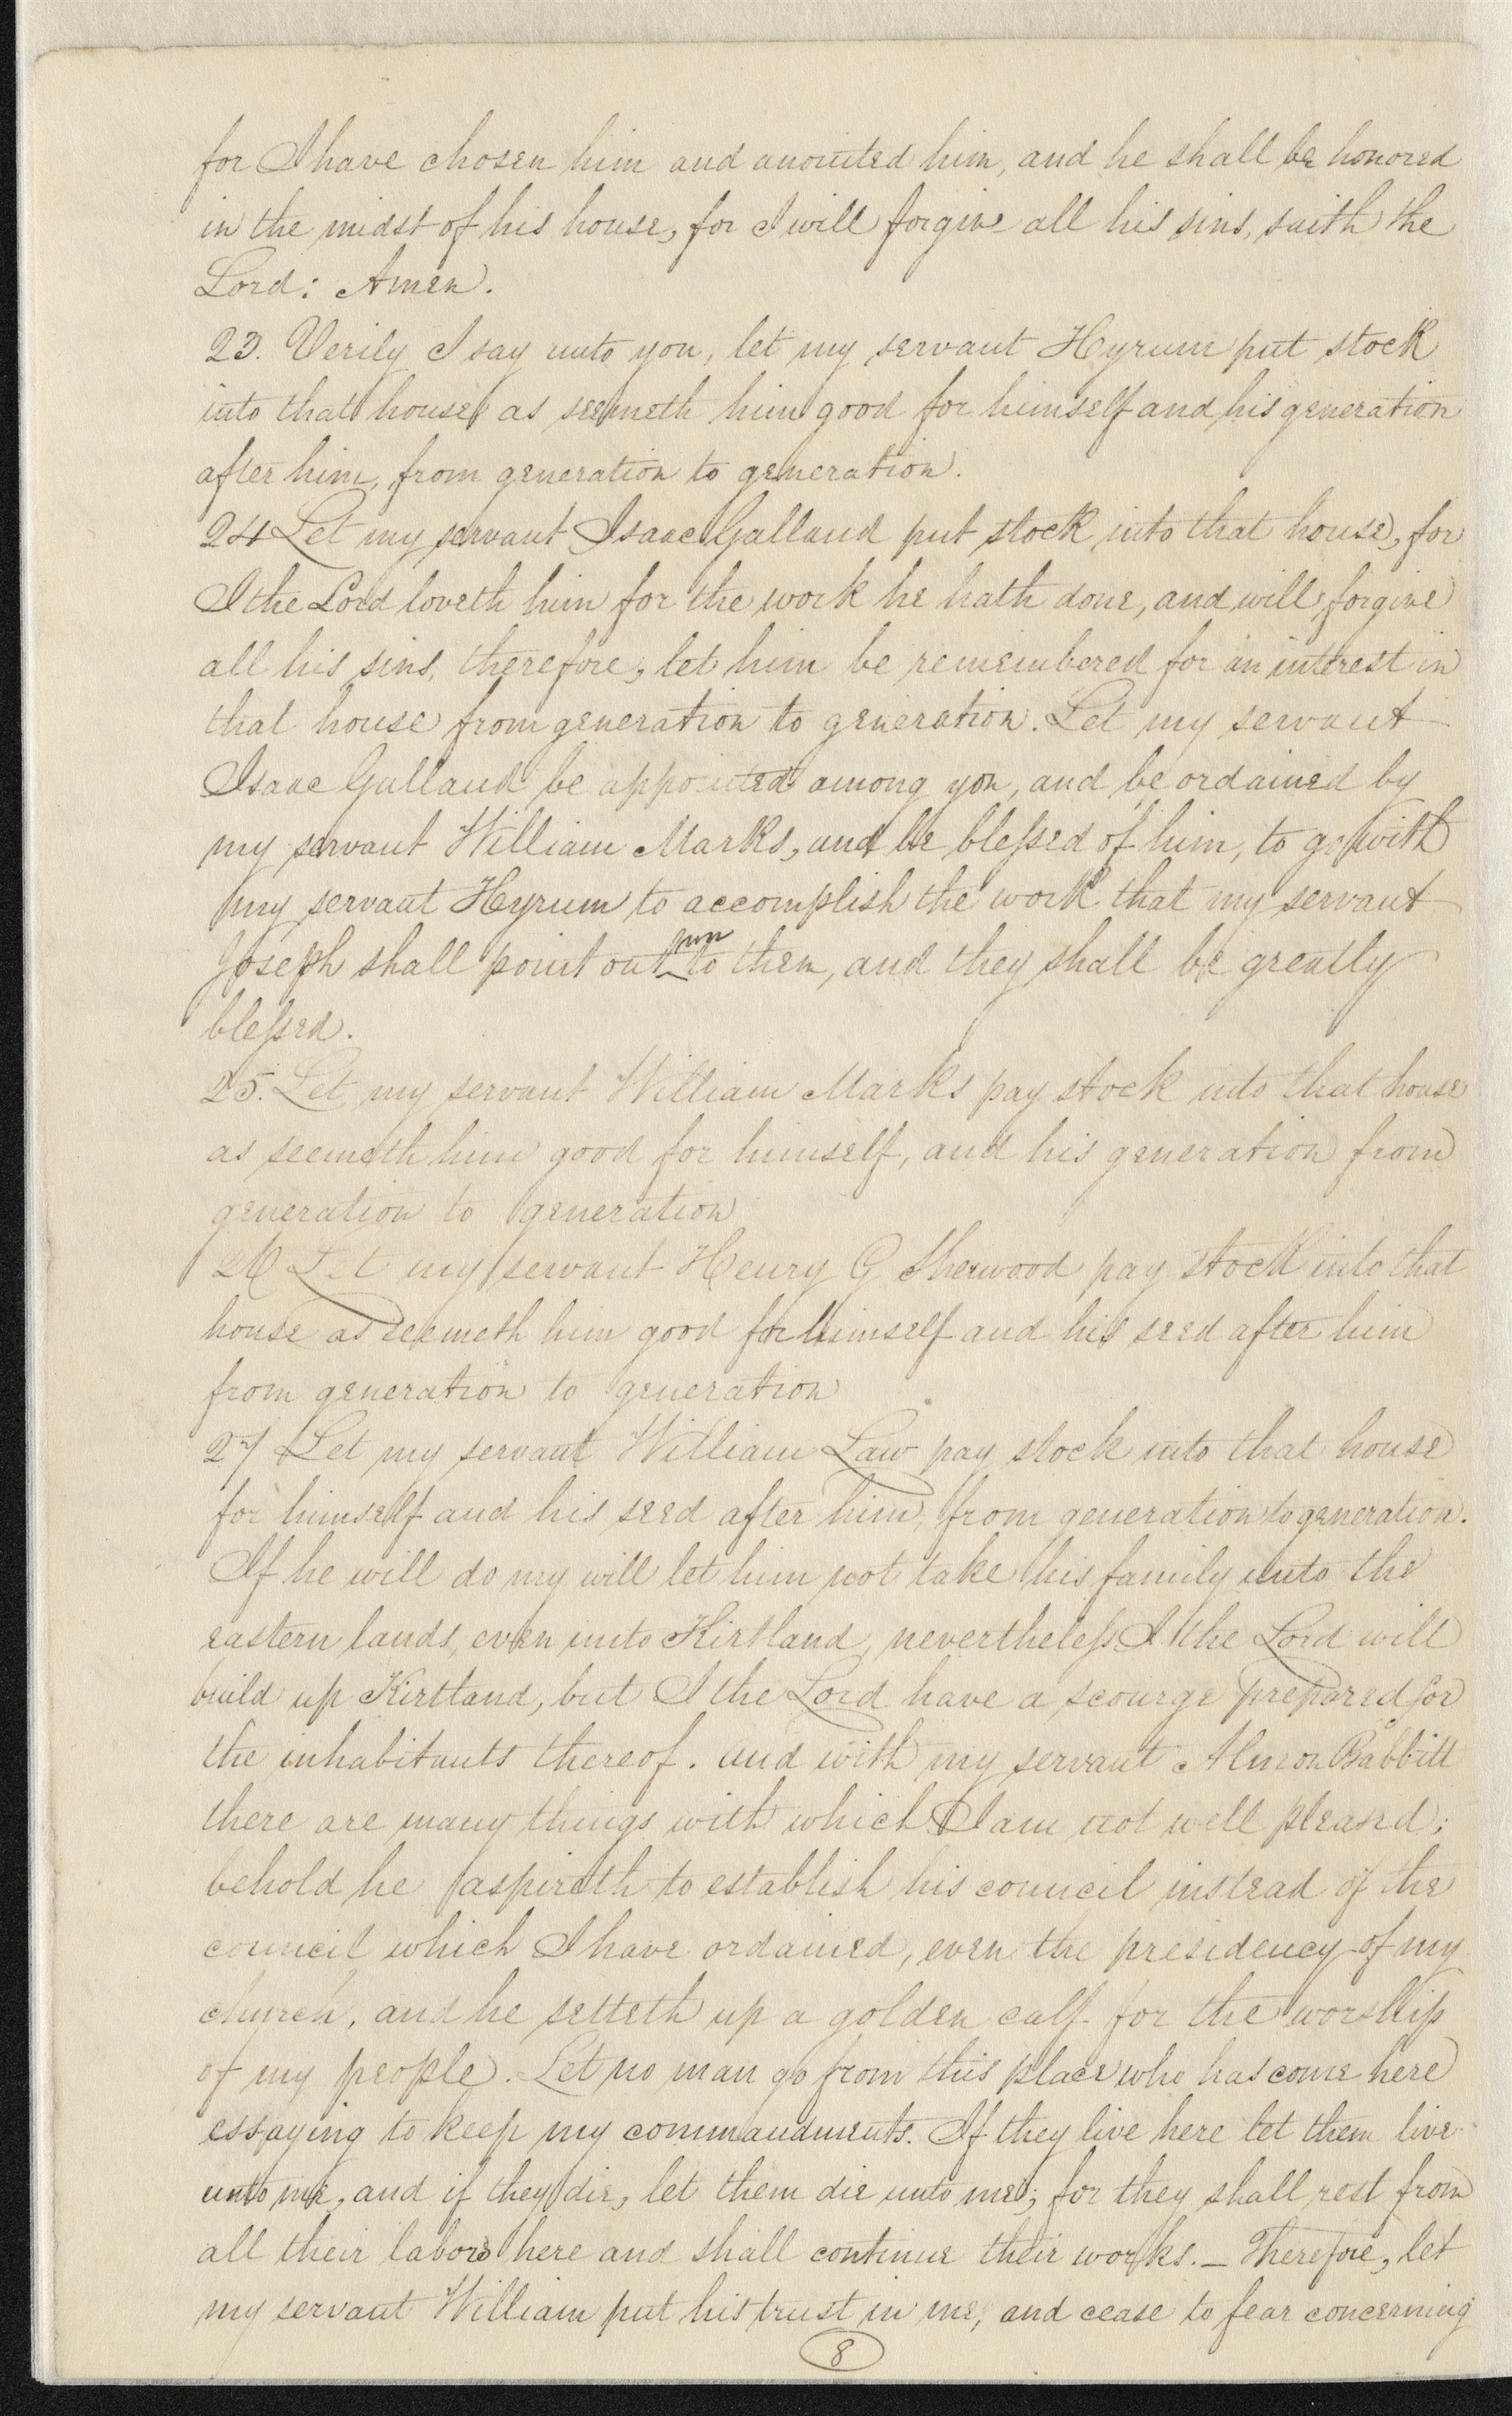 for I have chosen him and anointed him, and he shall be honored
in the midst of his house, for I will forgive all his sins, saith the
Lord: Amen.
23. Verily I say unto you, let my servant Hyrum put stock
into that house, as seemeth him good for himself and his generation
after him, from generation to generation.
24 Let my servant Isaac Galland put stock into that house, for
I the Lord loveth him for the work he hath done, and will forgive
all his sins, therefore, let him be remembered for an interest in
that house from generation to generation. Let my servant
Isaac Galland be appointed among you, and be ordained by
my servant William Marks, and be blessed of him, to go with
my servant Hyrum to accomplish the work that my servant
Joseph shall point out to them, and they shall be greatly
blessed.
25. Let my servant William Marks pay stock into that house
as seemeth him good for himself, and his generation from
generation to generation
26 Let my servant Henry G Sherwood pay stock into that
house as seemeth him good for himself and his seed after him
from generation to generation
27 Let my servant William Law pay stock into that house
for himself and his seed after him, from generation to generation.
If he will do my will let him not take his family unto the
eastern lands, even unto Kirtland, nevertheless I the Lord will
build up Kirtland, but I the Lord have a scourge prepared for
the inhabitants thereof. and with my servant Almon Babbitt
there are many things with which I am not well pleased;
behold he aspireth to establish his council instead of the
council which I have ordained, even the presidency of my
church, and he setteth up a golden calf for the worship
of my people. Let no man go from this place who has come here
essaying to keep my commandments. If they live here let them live
unto me, and if they die, let them die unto me; for they shall rest from
all their labors here and shall continue their works. — Therefore, let
my servant William put his trust in me, and cease to fear concerning
8